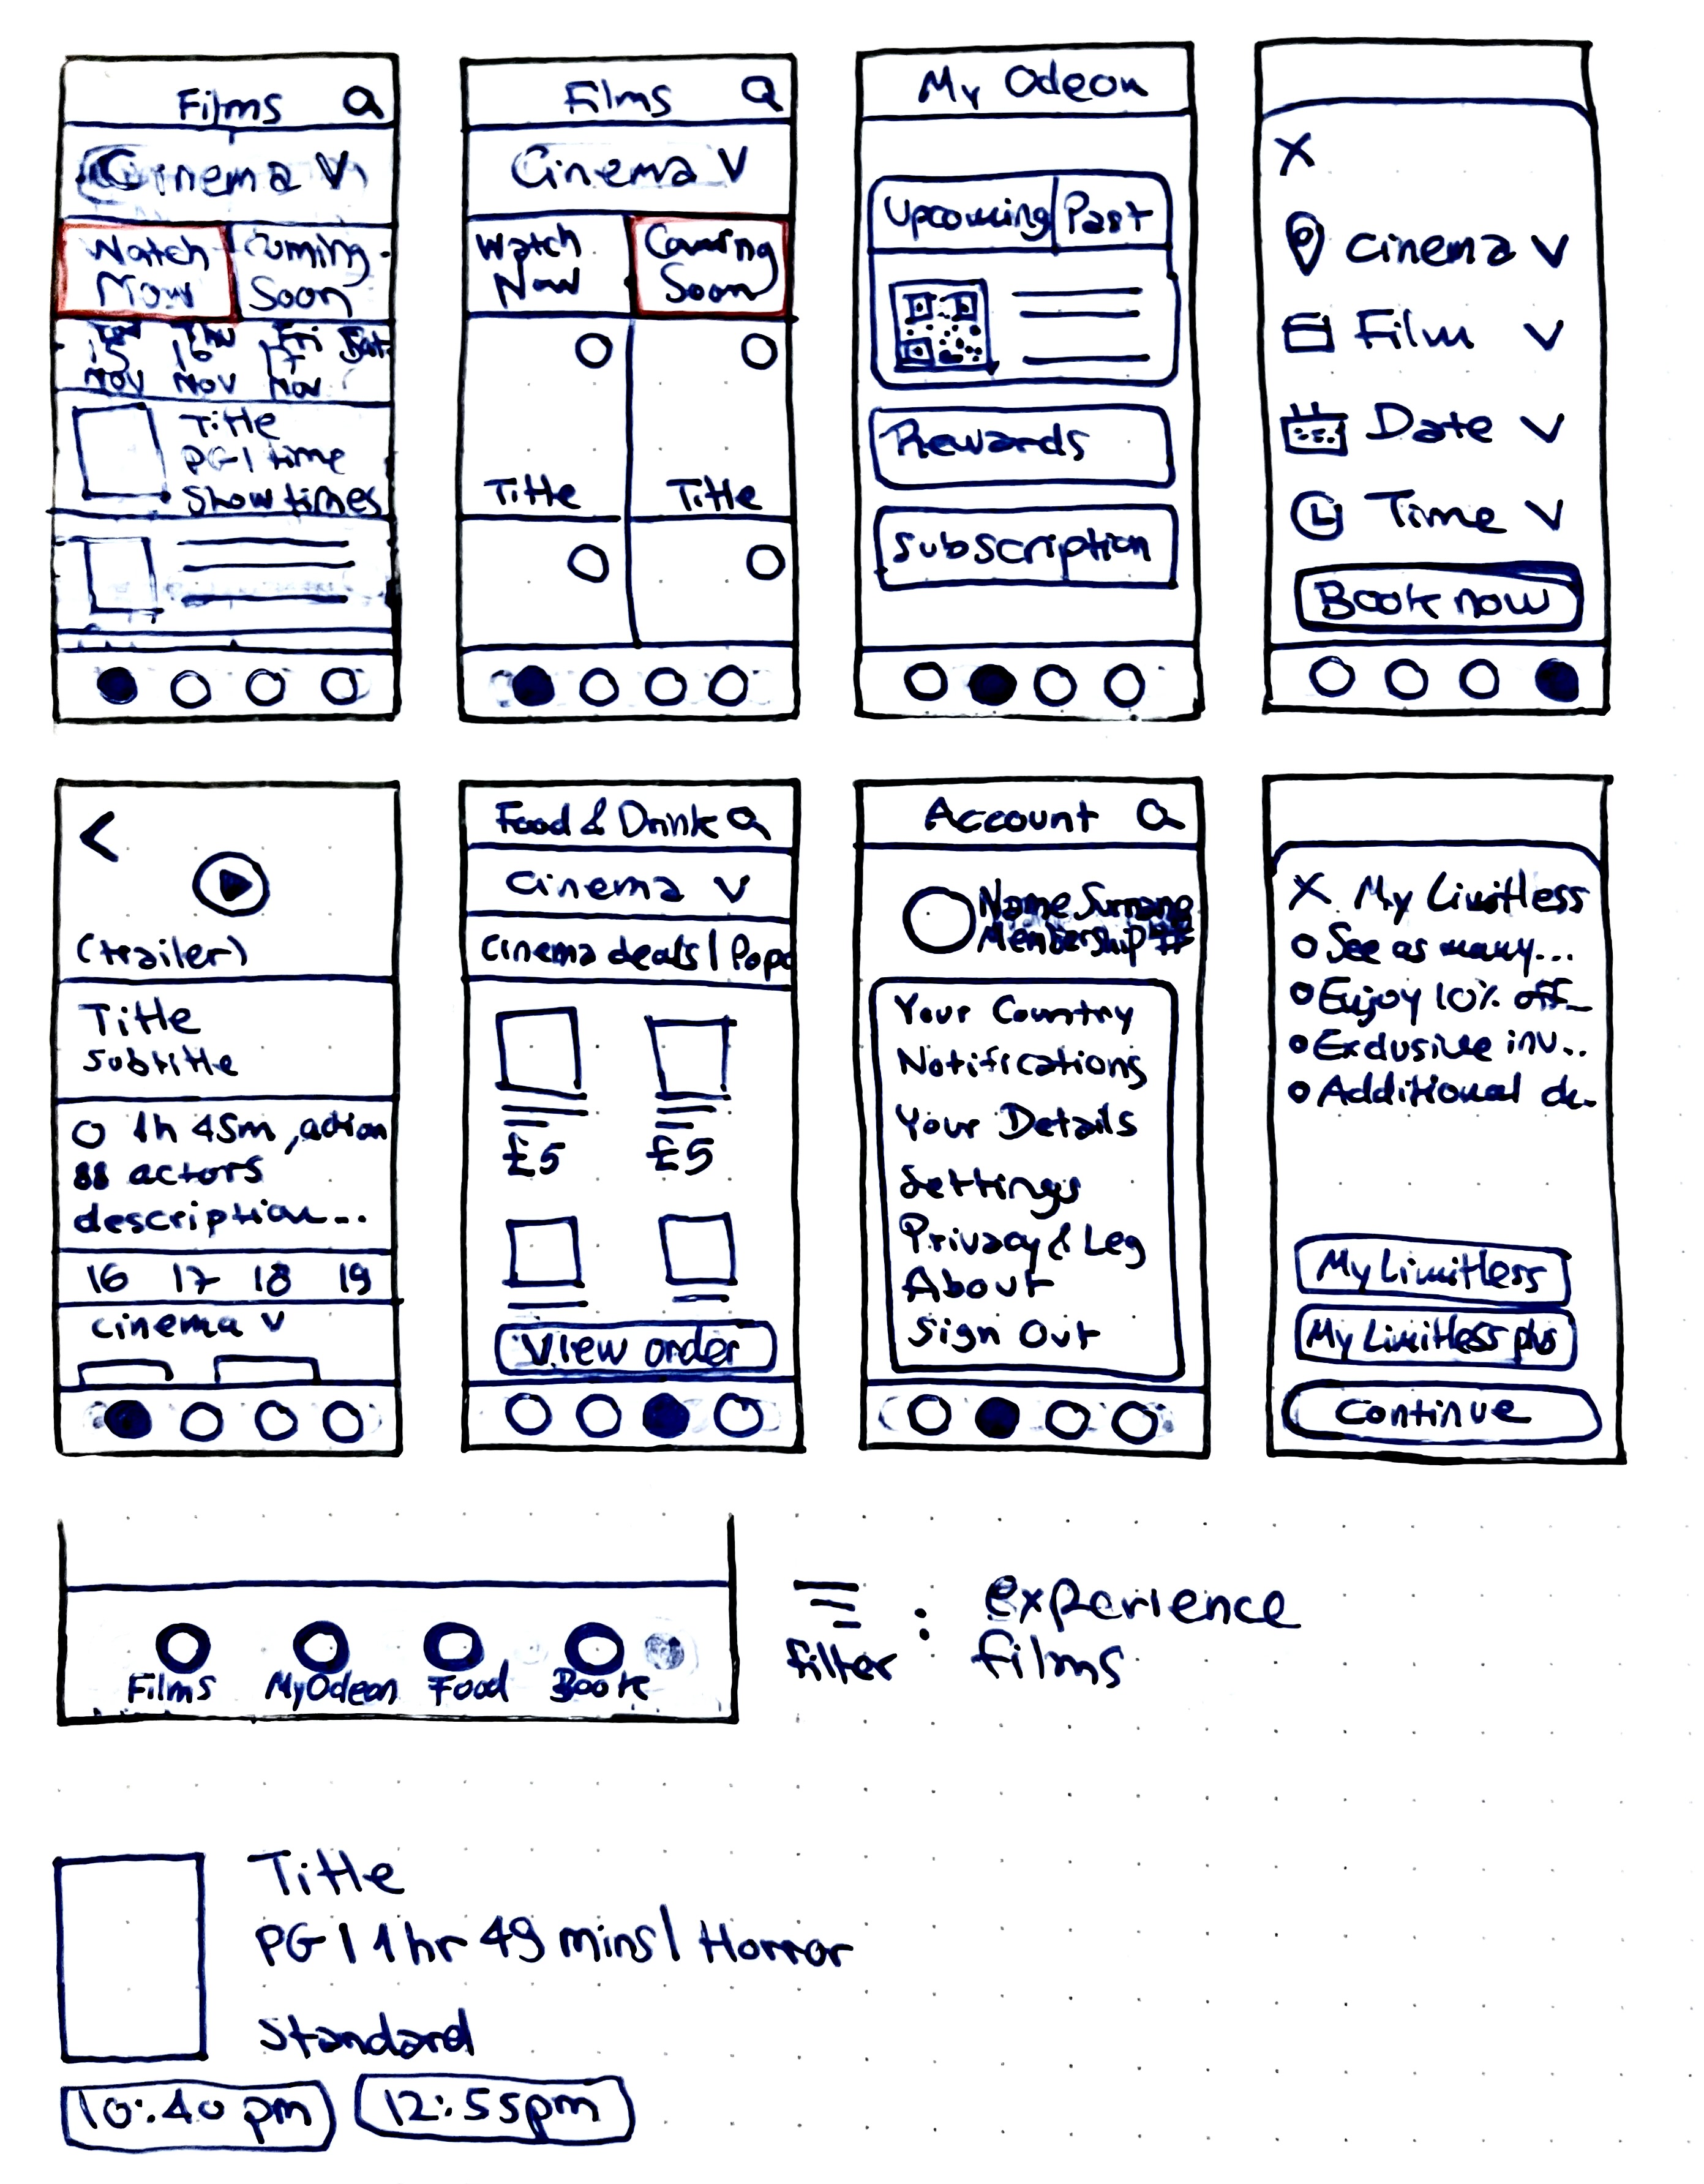 Films
Cinema V
Watch
Now
Coming
Soon
Thu Fri Sat
15 16 17
Nov Nov Nov
Title
PG | time
Show times
Films
Cinema V
Watch
Now
Coming
Soon
Title Title
My Odeon
Upcoming | Past
Rewards
Subscription
X
Cinema V
Film V
Date V
Time V
Book now
<
(trailer)
Title
Subtitle
1h 45m, action
88 actors
description...
16 17 18 19
cinema V
Food & Drink
cinema V
Cinema deals | Popc
£5 £5
View order
Account
Name Surname
Membership #
Your Country
Notifications
Your Details
Settings
Privacy & Leg
About
Sign Out
X My Limitless
See as many...
Enjoy 10% off...
Exclusive inv...
Additional de..
My Limitless
My Limitless plus
Continue
Films MyOdeon Food Book
filter : experience
films
Title
PG | 1hr 49 mins | Horror
Standard
10:40 pm 12:55pm